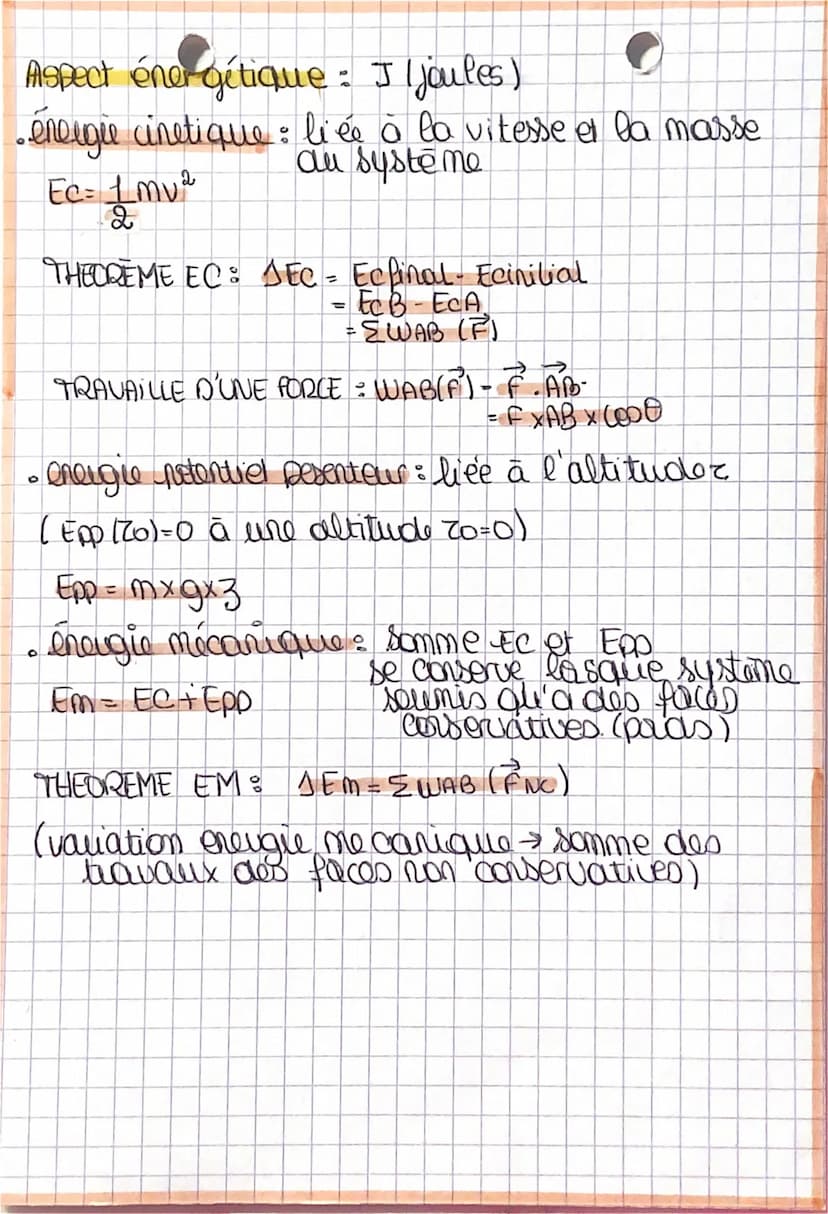 Aspect énergétique : J (joules)
. énergie cinetique : liée à la vitesse et la masse
du système
Ec = 1/2 mv²
THEORÈME EC : ΔEC = Ecfinal - Ecinitial
= EcB - EcA
= ΣWAB (F⃗)
TRAVAILLE D'UNE FORCE : WAB(F⃗) = F⃗ . AB⃗
= F x AB x cosθ
. energie potentiel pesenteur : liée à l'altitude z
( Epp (z0)=0 à une altitude z0=0)
Epp = m x g x z
. énergie mécanique : somme Ec et Epp
se conserve lorsque système
Em = EC + Epp
soumis qu'a des forces
conservatives (poids)
THEOREME EM : ΔEm = ΣWAB (F⃗NC)
(variation energie mecanique → somme des
travaux des forces non conservatives)